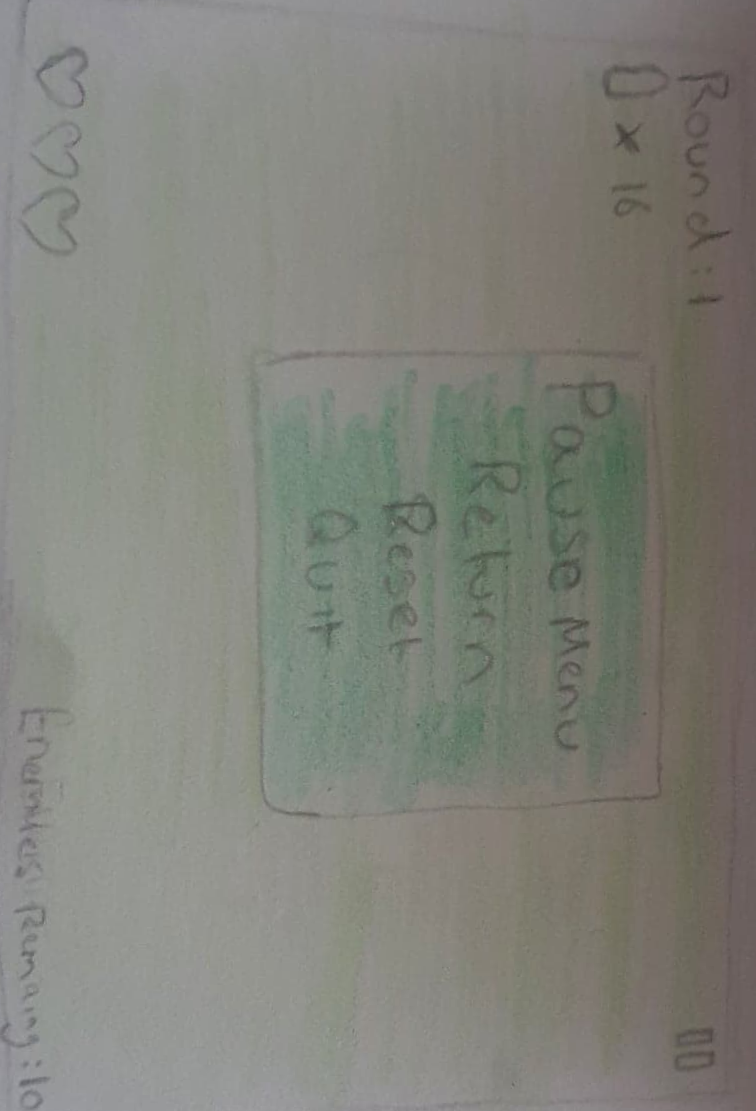 Round: 1
x 16
Pause Menu
Return
Reset
Quit
Remaing: 10